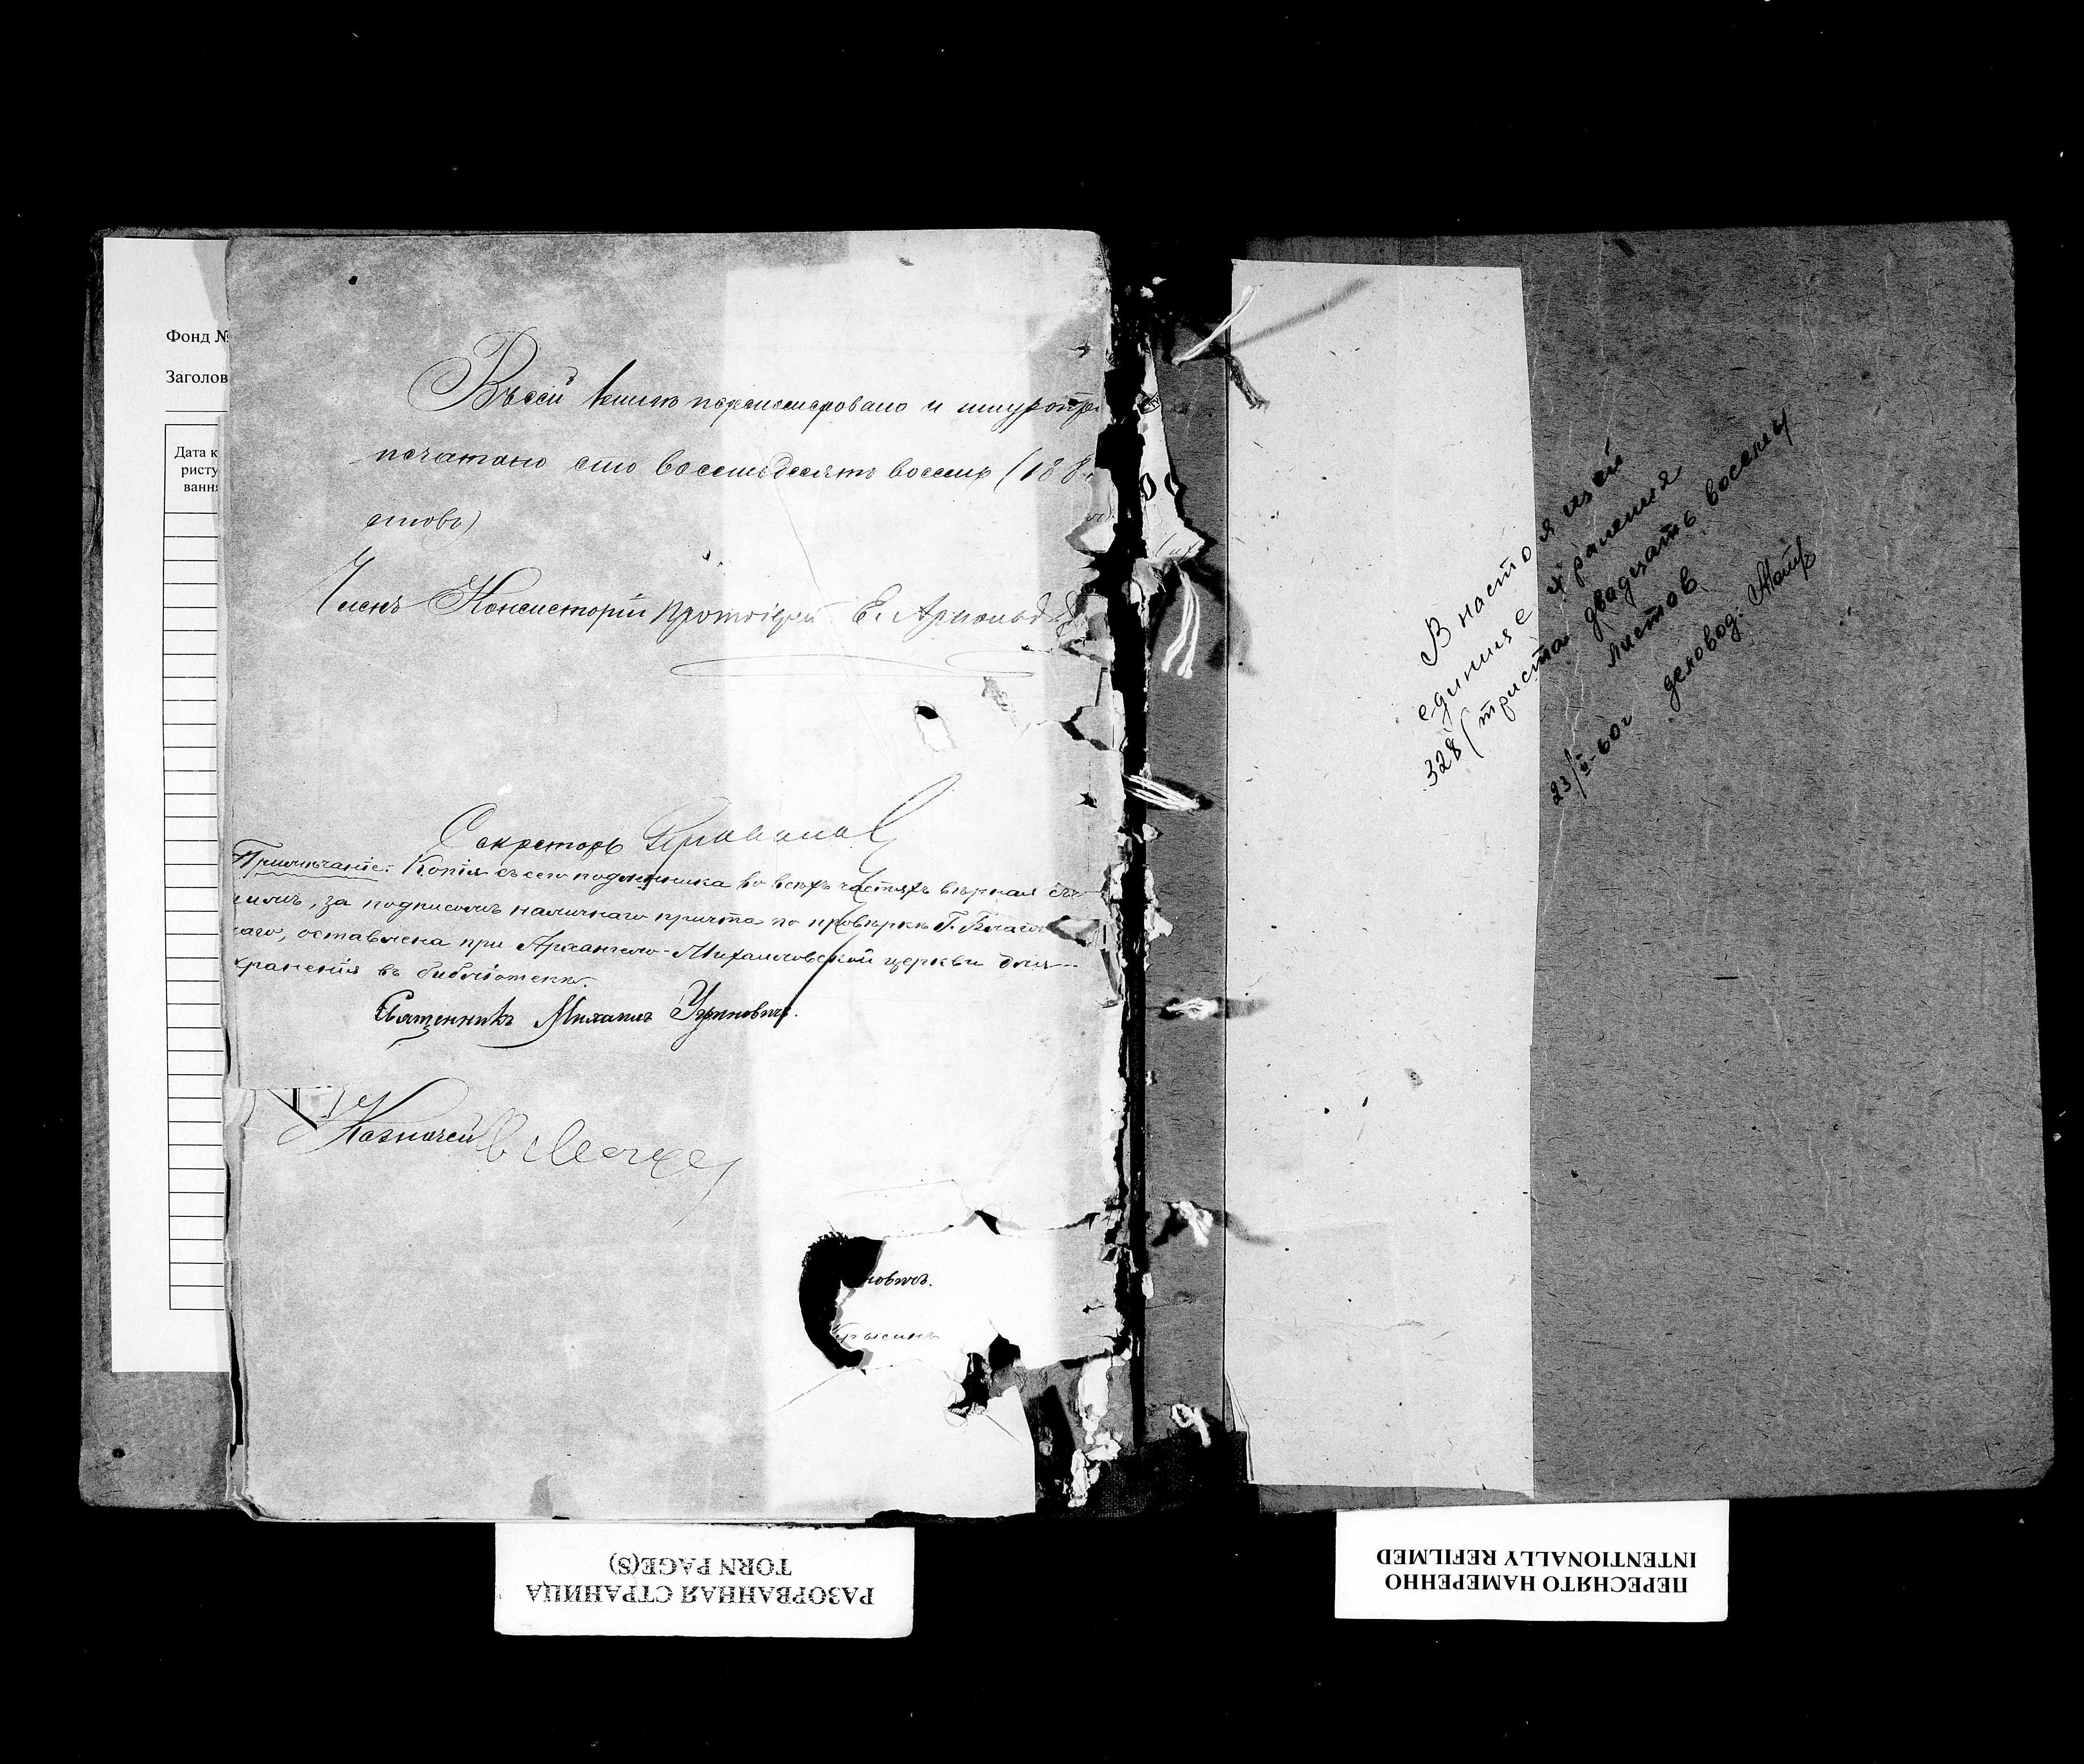 Фонд №
Заголов
Дата к
ристу
вання
Въ сей книгѣ перенумеровано и шнуропри
печатано сто восемьдесятъ восемь (188
стовъ)
Членъ Консисторіи Протоіерей Е. Арнольд
Секретарь
Примѣчаніе: Копія съ сего подлинника во всѣхъ частяхъ вѣрная съ
за подписомъ наличнаго причта по провѣркѣ Г. Благо
наго, оставлена при Архангело-Михайловской церкви для
храненія въ библіотекѣ.
Священникъ Михаилъ
Казначей
новичъ.
В настоящей
единице хранения
328 (триста двадцать восемь)
листов
23/II-60г деловод.
РАЗОРВАННАЯ СТРАНИЦА
TORN PAGE(S)
ПЕРЕСНЯТО НАМЕРЕННО
INTENTIONALLY REFILMED